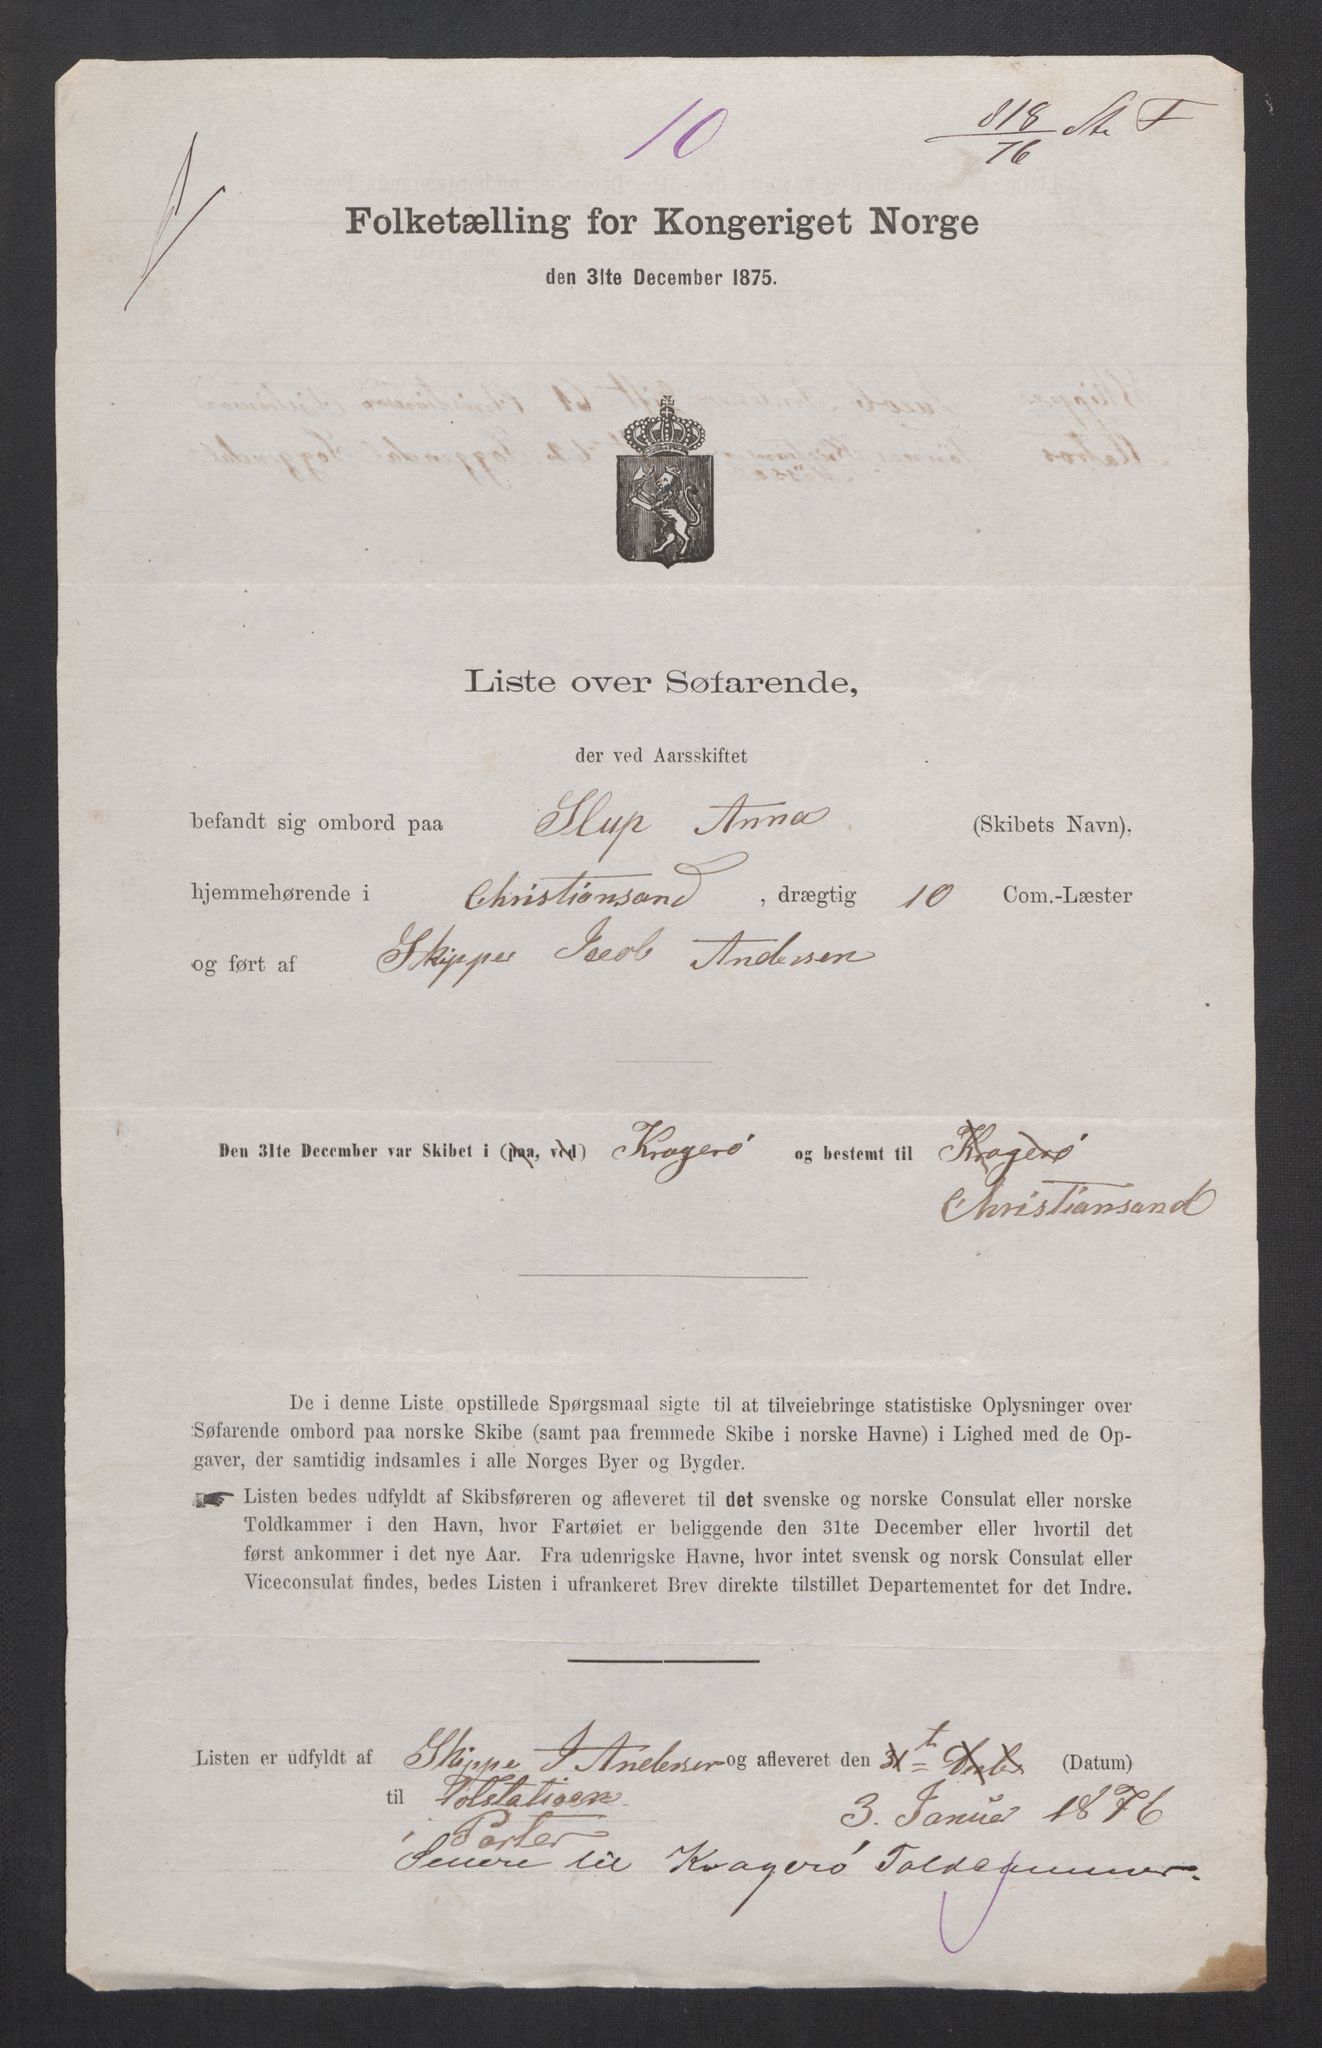 10
818/76 St. F
Folketælling for Kongeriget Norge
den 31te December 1875.
Liste over Søfarende,
der ved Aarsskiftet
befandt sig ombord paa Slup Anna (Skibets Navn),
hjemmehørende i Christiansand, drægtig 10 Com.-Læster
og ført af Skipper Jacob Andersen
Den 31te December var Skibet i (paa, ved) Kragerø og bestemt til Kragerø
Christiansand
De i denne Liste opstillede Spørgsmaal sigte til at tilveiebringe statistiske Oplysninger over
Søfarende ombord paa norske Skibe (samt paa fremmede Skibe i norske Havne) i Lighed med de Op-
gaver, der samtidig indsamles i alle Norges Byer og Bygder.
☛ Listen bedes udfyldt af Skibsføreren og afleveret til det svenske og norske Consulat eller norske
Toldkammer i den Havn, hvor Fartøiet er beliggende den 31te December eller hvortil det
først ankommer i det nye Aar. Fra udenrigske Havne, hvor intet svensk og norsk Consulat eller
Viceconsulat findes, bedes Listen i ufrankeret Brev direkte tilstillet Departementet for det Indre.
Listen er udfyldt af Skippe J Andersen og afleveret den 31t (Datum)
til Tolstatioen 3. Januar 1876
i Porter
Senere til Kragerø Toldkammer.